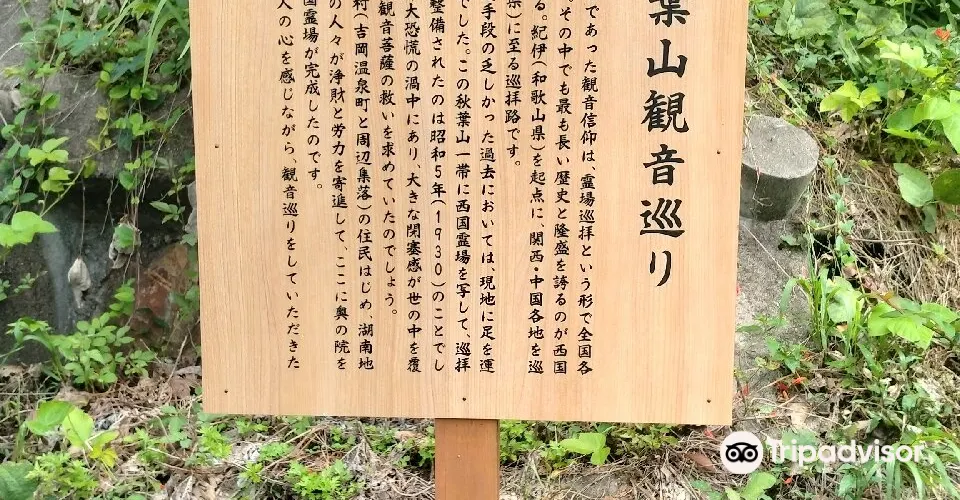 葉山観音巡り
であった観音信仰は、霊場巡拝という形で全国各
。その中でも最も長い歴史と隆盛を誇るのが西国
る。紀伊(和歌山県)を起点に、関西・中国各地を巡
県)に至る巡拝路です。
手段の乏しかった過去においては、現地に足を運
でした。この秋葉山一帯に西国霊場を写して、巡拝
整備されたのは昭和5年(1930)のことでし
大恐慌の渦中にあり、大きな閉塞感が世の中を覆
観音菩薩の救いを求めていたのでしょう。
村(吉岡温泉町と周辺集落)の住民はじめ、湖南地
の人々が浄財と労力を寄進して、ここに奥の院を
国霊場が完成したのです。
人の心を感じながら、観音巡りをしていただきた
Tripadvisor